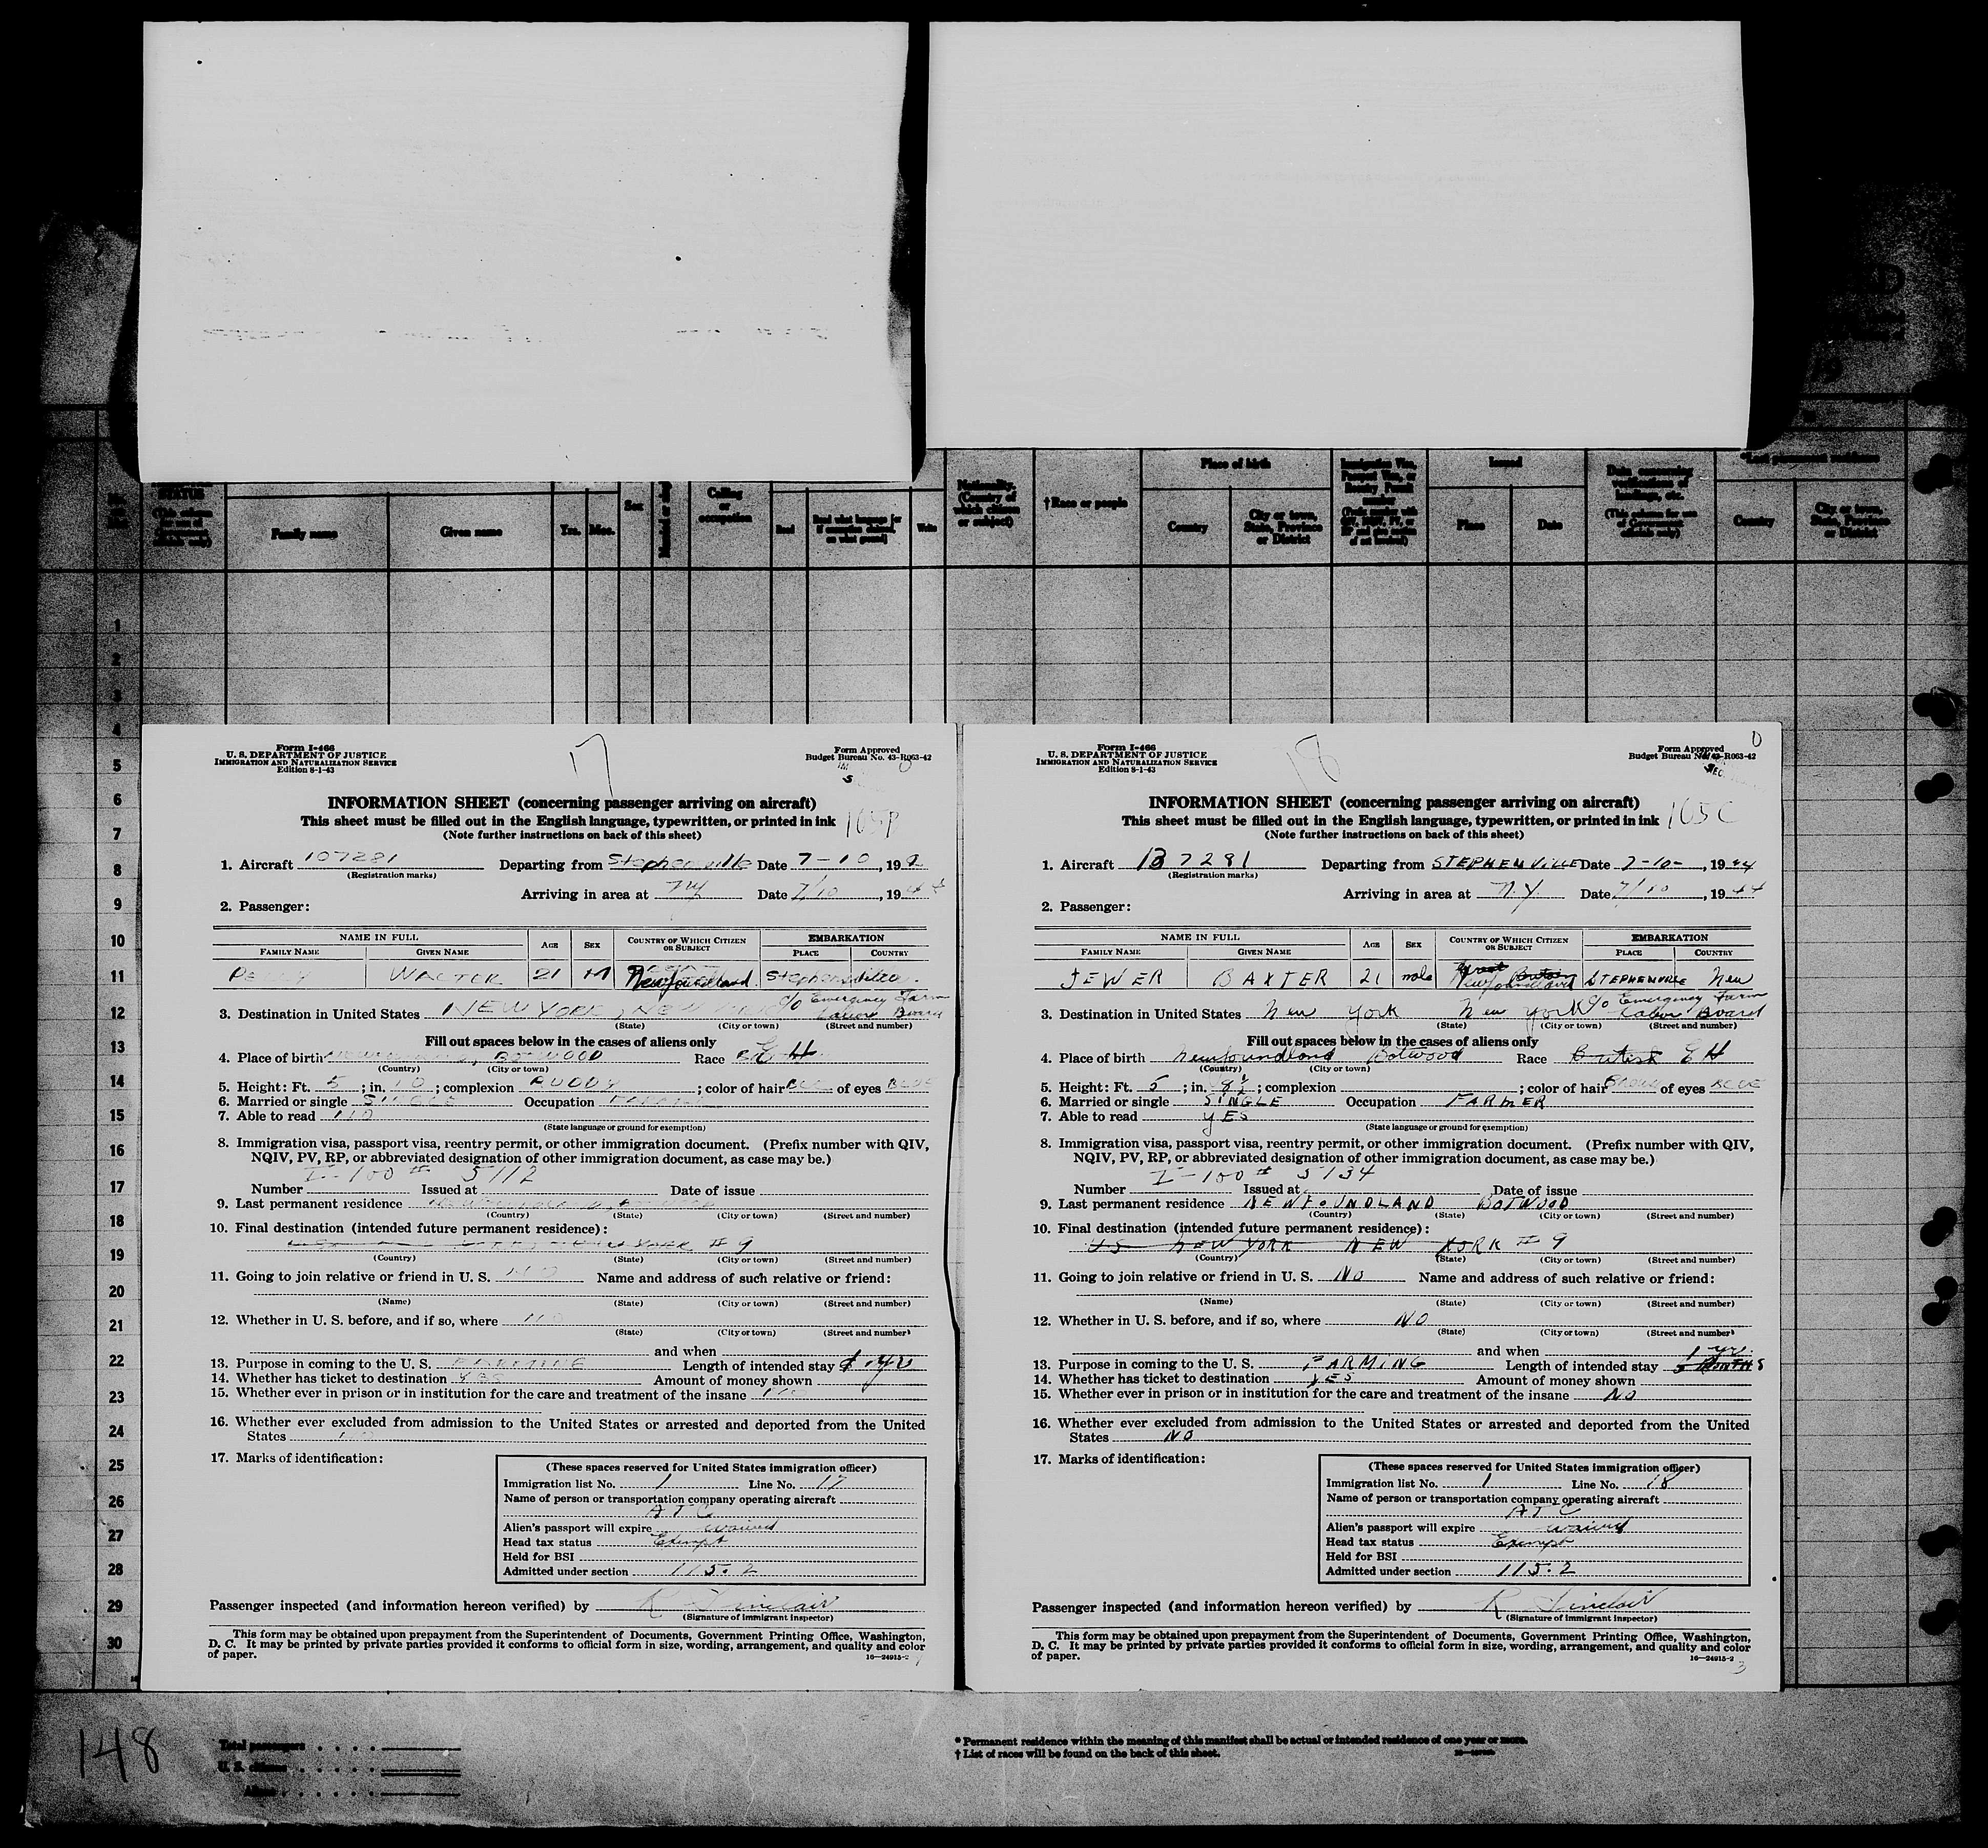 Place of birth
Issued
*Last permanent residence
STATUS
Family name
Given name
Yrs.
Mos.
Sex
Calling
or
occupation
Read
Write
Nationality.
(Country of
which citizen
or subject)
†Race or people
Country
City or town,
State, Province
or District
Place
Date
Country
City or town,
State, Province
or District
1
2
3
4
5
6
7
8
9
10
11
12
13
14
15
16
17
18
19
20
21
22
23
24
25
26
27
28
29
30
17
Form I-466
U. S. DEPARTMENT OF JUSTICE
IMMIGRATION AND NATURALIZATION SERVICE
Edition 8-1-43
Form Approved
Budget Bureau No. 43-R063-42
INFORMATION SHEET (concerning passenger arriving on aircraft)
This sheet must be filled out in the English language, typewritten, or printed in ink
(Note further instructions on back of this sheet)
1. Aircraft 107281 Departing from Stephenville Date 7-10, 19
(Registration marks)
Arriving in area at NY Date 7/10, 1944
2. Passenger:
NAME IN FULL
FAMILY NAME
GIVEN NAME
AGE
SEX
COUNTRY OF WHICH CITIZEN
OR SUBJECT
EMBARKATION
PLACE
COUNTRY
WALTOR 21 M Newfoundland Stephenville
3. Destination in United States NEW YORK, NEW c/o Emergency Farm Labor Board
(State) (City or town) (Street and number)
Fill out spaces below in the cases of aliens only
4. Place of birth BOTWOOD Race EH
(Country) (City or town)
5. Height: Ft. 5; in. 10; complexion RUDDY; color of hair of eyes BLUE
6. Married or single SINGLE Occupation FARMER
7. Able to read NO
(State language or ground for exemption)
8. Immigration visa, passport visa, reentry permit, or other immigration document. (Prefix number with QIV,
NQIV, PV, RP, or abbreviated designation of other immigration document, as case may be.)
I-100 # 5112
Number Issued at Date of issue
9. Last permanent residence
(Country) (State) (City or town) (Street and number)
10. Final destination (intended future permanent residence):
YORK # 9
(Country) (State) (City or town) (Street and number)
11. Going to join relative or friend in U. S. NO Name and address of such relative or friend:
(Name) (State) (City or town) (Street and number)
12. Whether in U. S. before, and if so, where NO
(State) (City or town) (Street and number)
and when
13. Purpose in coming to the U. S. FARMING Length of intended stay 1 yr
14. Whether has ticket to destination YES Amount of money shown
15. Whether ever in prison or in institution for the care and treatment of the insane NO
16. Whether ever excluded from admission to the United States or arrested and deported from the United
States NO
17. Marks of identification:
(These spaces reserved for United States immigration officer)
Immigration list No. 1 Line No. 17
Name of person or transportation company operating aircraft
ATC
Alien's passport will expire waived
Head tax status Exempt
Held for BSI
Admitted under section 115.2
Passenger inspected (and information hereon verified) by R Sinclair
(Signature of immigrant inspector)
This form may be obtained upon prepayment from the Superintendent of Documents, Government Printing Office, Washington,
D. C. It may be printed by private parties provided it conforms to official form in size, wording, arrangement, and quality and color
of paper.
16—24915-2
18
Form I-466
U. S. DEPARTMENT OF JUSTICE
IMMIGRATION AND NATURALIZATION SERVICE
Edition 8-1-43
Form Approved
Budget Bureau No. 43-R063-42
INFORMATION SHEET (concerning passenger arriving on aircraft)
This sheet must be filled out in the English language, typewritten, or printed in ink 105C
(Note further instructions on back of this sheet)
1. Aircraft 107281 Departing from STEPHENVILLE Date 7-10-, 1944
(Registration marks)
Arriving in area at N.Y. Date 7/10, 1944
2. Passenger:
NAME IN FULL
FAMILY NAME
GIVEN NAME
AGE
SEX
COUNTRY OF WHICH CITIZEN
OR SUBJECT
EMBARKATION
PLACE
COUNTRY
JEWER BAXTER 21 male Great Britain Newfoundland STEPHENVILLE New
3. Destination in United States New York New York c/o Emergency Farm Labor Board
(State) (City or town) (Street and number)
Fill out spaces below in the cases of aliens only
4. Place of birth Newfoundland Botwood Race British EH
(Country) (City or town)
5. Height: Ft. 5; in. 8½; complexion ; color of hair Brown of eyes BLUE
6. Married or single SINGLE Occupation FARMER
7. Able to read YES
(State language or ground for exemption)
8. Immigration visa, passport visa, reentry permit, or other immigration document. (Prefix number with QIV,
NQIV, PV, RP, or abbreviated designation of other immigration document, as case may be.)
I-100 # 5134
Number Issued at Date of issue
9. Last permanent residence NEWFOUNDLAND BOTWOOD
(Country) (State) (City or town) (Street and number)
10. Final destination (intended future permanent residence):
US NEW YORK NEW YORK # 9
(Country) (State) (City or town) (Street and number)
11. Going to join relative or friend in U. S. NO Name and address of such relative or friend:
(Name) (State) (City or town) (Street and number)
12. Whether in U. S. before, and if so, where NO
(State) (City or town) (Street and number)
and when
13. Purpose in coming to the U. S. FARMING Length of intended stay 5 MONTHS 1 yr.
14. Whether has ticket to destination YES Amount of money shown
15. Whether ever in prison or in institution for the care and treatment of the insane NO
16. Whether ever excluded from admission to the United States or arrested and deported from the United
States NO
17. Marks of identification:
(These spaces reserved for United States immigration officer)
Immigration list No. 1 Line No. 18
Name of person or transportation company operating aircraft
ATC
Alien's passport will expire waived
Head tax status Exempt
Held for BSI
Admitted under section 115.2
Passenger inspected (and information hereon verified) by R Sinclair
(Signature of immigrant inspector)
This form may be obtained upon prepayment from the Superintendent of Documents, Government Printing Office, Washington,
D. C. It may be printed by private parties provided it conforms to official form in size, wording, arrangement, and quality and color
of paper.
16—24915-2
3
148
Total passengers
U. S. citizens
Aliens
* Permanent residence within the meaning of this manifest shall be actual or intended residence of one year or more.
† List of races will be found on the back of this sheet.